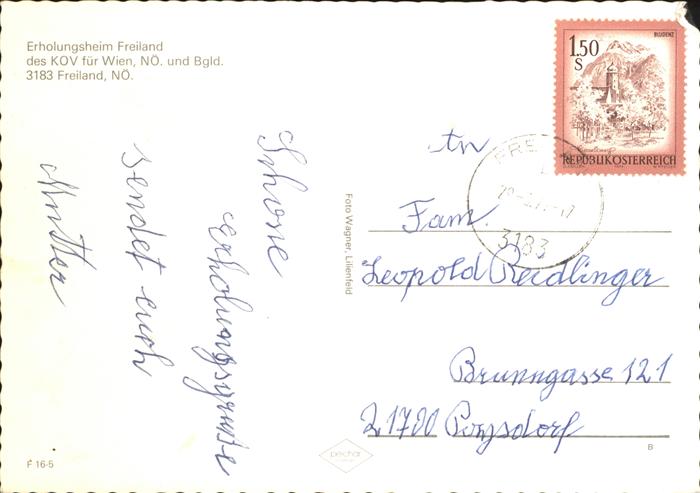 Erholungsheim Freiland
des KOV für Wien, NÖ. und Bgld.
3183 Freiland, NÖ.
Schöne
erholungsgrüße
sendet euch
Mutter
Foto Wagner, Lilienfeld
1.50
S
BLUDENZ
REPUBLIK ÖSTERREICH
FRE
3183
An
Fam.
Leopold Reidlinger
Brunngasse 121
21700 Poysdorf
F 16-5
pechar
B